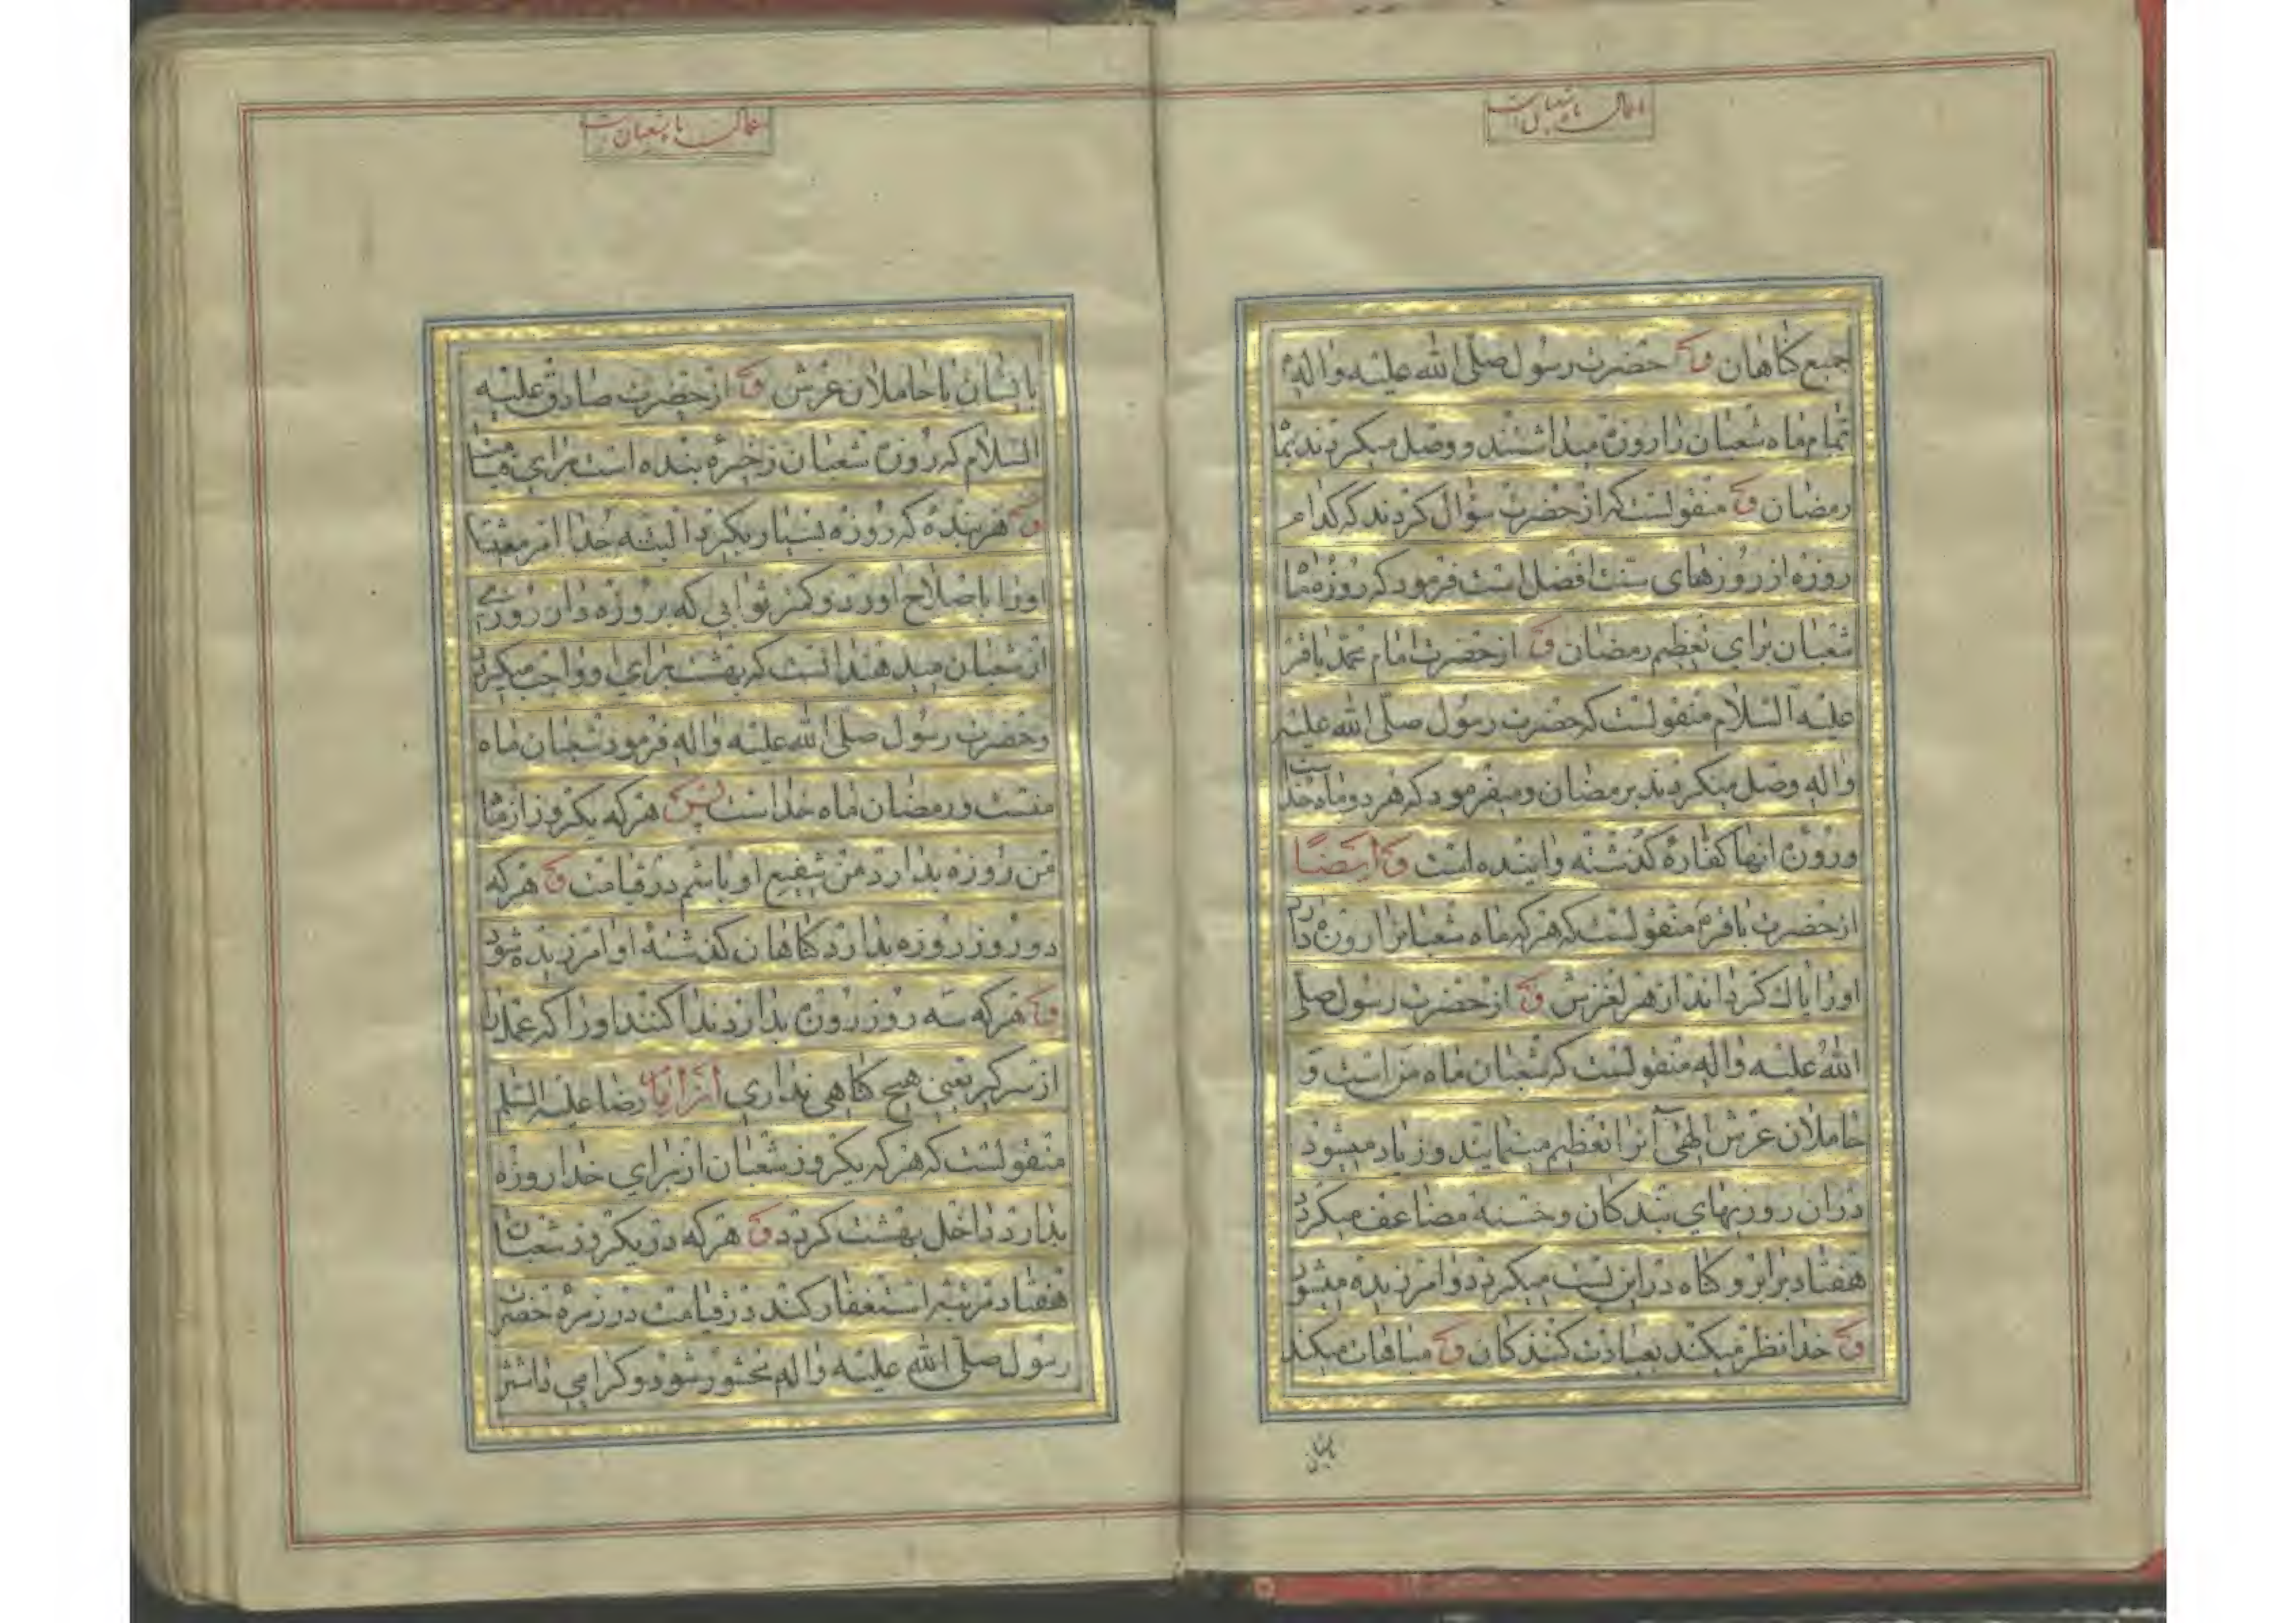 اعمال ماه شعبان است
جمیع کناهان و حضرت رسول صلی الله علیه واله
تمام ماه شعبان را روزه میداشتند و وصل میکردند بماه
رمضان و منقولست که از حضرت سؤال کردند که کدام
روزه از روزهای سنت افضل است فرمود که روزه ماه
شعبان برای تعظیم رمضان و از حضرت امام محمد باقر
علیه السلام منقولست که حضرت رسول صلی الله علیه
واله وصل میکردند برمضان و میفرمود که هر دو ماه خداست
و روزه انها کفاره کذشته و اینده است و ایضا
از حضرت باقر منقولست که هر که ماه شعبانرا روزه دارد
اورا پاک کرداند از هر لغزش و از حضرت رسول صلی
الله علیه واله منقولست که شعبان ماه من است و
حاملان عرش الهی آنرا تعظیم مینمایند و زیاد میشود
در ان روزیهای بندکان و حسنه مضاعف میکردد
هفتاد برابر و کناه در این پست میکردد و امرزیده میشود
و خدا نظر میکند بعبادت کنندکان و مباهات میکند
بایشان
اعمال ماه شعبان است
بایشان با حاملان عرش و از حضرت صادق علیه
السلام که روزه شعبان ذخیره بنده است برای قیامت
و هر بنده که روزه بسیار بکیرد البته خدا امر معیشت
اورا باصلاح اورد و کمتر ثوابی که بروزه دار ان روزی
از شعبان میدهند انست که بهشت برای او واجب میکردد
و حضرت رسول صلی الله علیه واله فرمود شعبان ماه
منست و رمضان ماه خداست پس هر که یکروز از ماه
من روزه بدارد من شفیع او باشم در قیامت و هر که
دو روز روزه بدارد کناهان کذشته او امرزیده شود
و هر که سه روز روزه بدارد ندا کنند اورا که عمل را
از سر کیر یعنی هیچ کناهی نداری از امام رضا علیه السلم
منقولست که هر که یکروز شعبان از برای خدا روزه
بدارد داخل بهشت کردد و هر که در یکروز شعبان
هفتاد مرتبه استغفار کند در قیامت در زمره حضرت
رسول صلی الله علیه واله محشور شود و کرامی داشتن